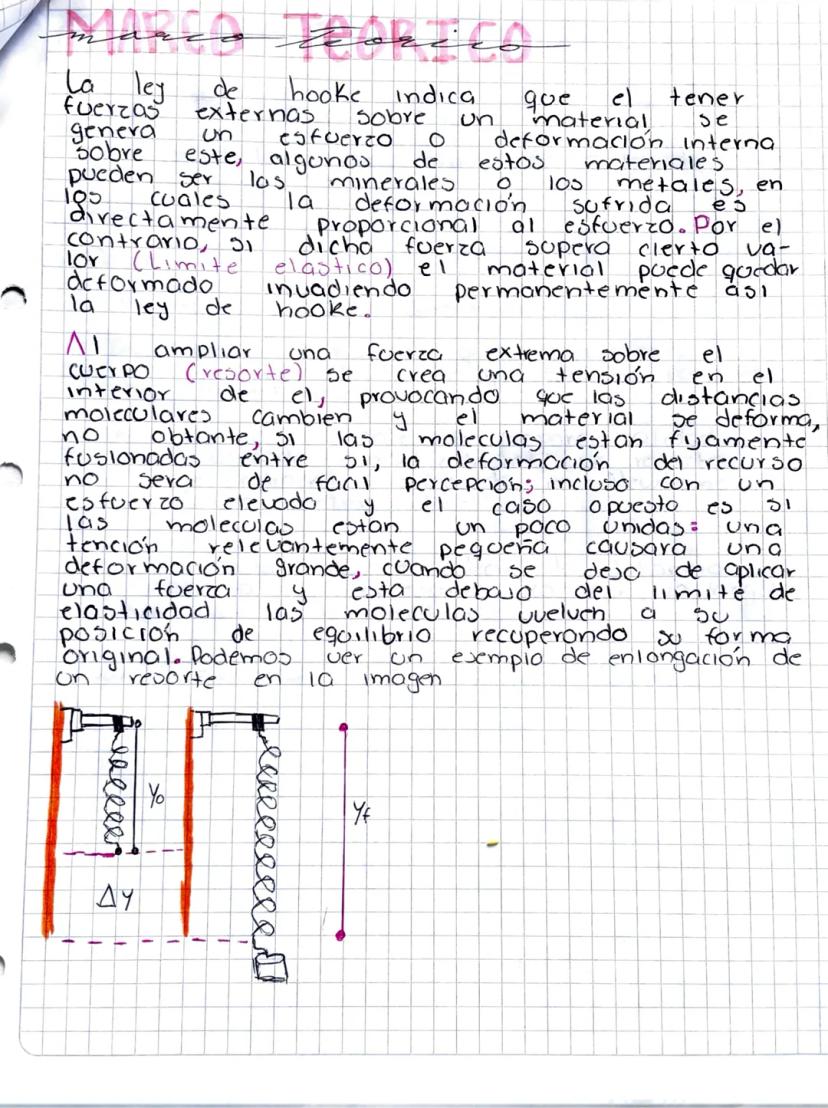 MARCO TEORICO
La ley de hooke indica que el tener
fuerzas externas sobre un material se
genera un esfuerzo o deformación interna
sobre este, algunos de estos materiales
pueden ser los minerales o los metales, en
los cuales la deformación sufrida es
directamente proporcional al esfuerzo. Por el
contrario, si dicha fuerza supera cierto va-
lor (Limite elastico) el material puede quedar
deformado invadiendo permanentemente asi
la ley de hooke.
Al ampliar una fuerza extrema sobre el
cuerpo (resorte) se crea una tensión en el
interior de el, provocando que las distancias
moleculares cambien y el material se deforma,
no obtante, si las moleculas estan fijamente
fusionadas entre si, la deformación del recurso
no sera de facil percepción; incluso con un
esfuerzo elevado y el caso opuesto es si
las moleculas estan un poco unidas: una
tención relevantemente pequeña causara una
deformación grande, cuando se deja de aplicar
una fuerza y esta debajo del limite de
elasticidad las moleculas vuelven a su
posición de equilibrio recuperando su forma
original. Podemos ver un exemplo de enlongación de
un resorte en la imagen
Yo
Yf
ΔY